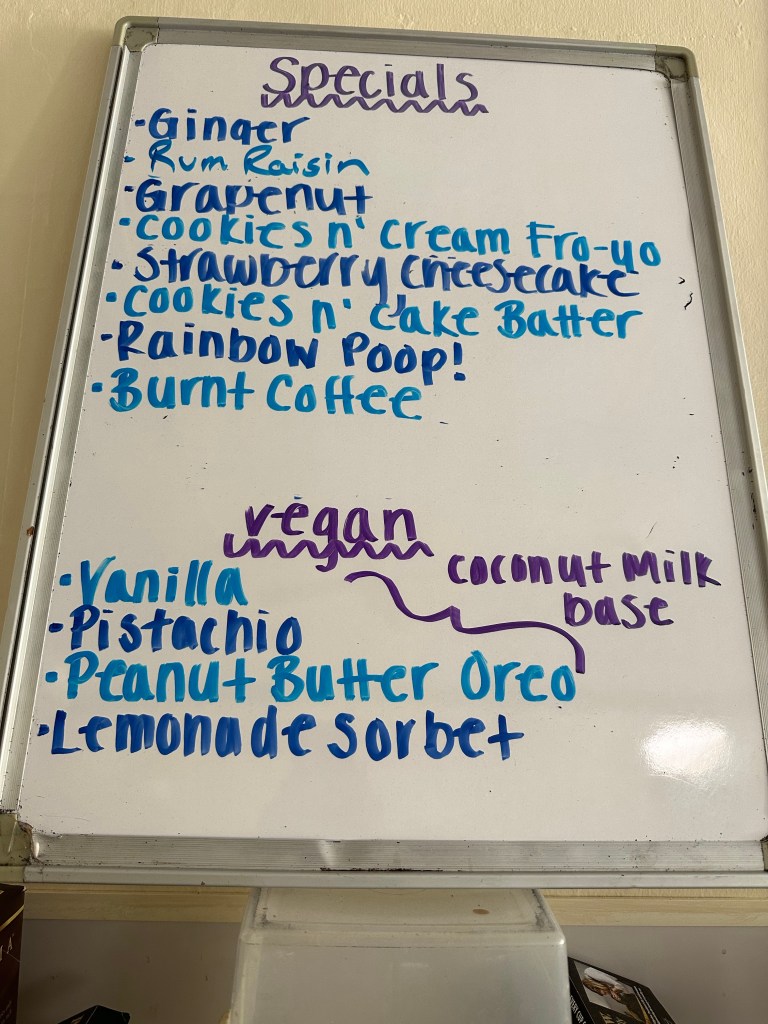 Specials
·Ginger
·Rum Raisin
·Grapenut
·Cookies n' Cream Fro-yo
·Strawberry Cheesecake
·Cookies n' Cake Batter
·Rainbow Poop!
·Burnt Coffee
vegan
coconut milk
base
·Vanilla
·Pistachio
·Peanut Butter Oreo
·Lemonade Sorbet